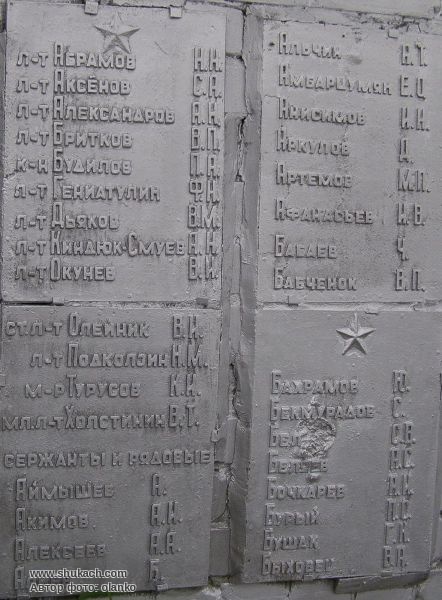 л-т Абрамов Н.Н.
л-т Аксёнов С.Я.
л-т Александров А.Н.
л-т Бритков В.П.
к-н Будилов П.Я.
л-т Гениатулин Ф.Н.
л-т Дьяков В.М.
л-т Киндюк-Смуев А.Н.
л-т Окунев В.И.
ст.л-т Олейник В.И.
л-т Подколзин Н.М.
м-р Турусов К.Н.
мл.л-т Холстинин В.Т.
сержанты и рядовые
Аймышев А.
Акимов А.И.
Алексеев А.А.
Б.
Альчин А.Т.
Амбарцумян Е.О
Анисимов И.Н.
Аркулов Д.
Артемов М.П.
Афанасьев И.В.
Бабаев Ч.
Бабченок В.П.
Бахрамов Ю.
Бекмурадов С.
С.В.
Н.С.
Бочкарев
Бурый
Бушак
Быховец В.Я.
www.shukach.com
Автор фото: olanko